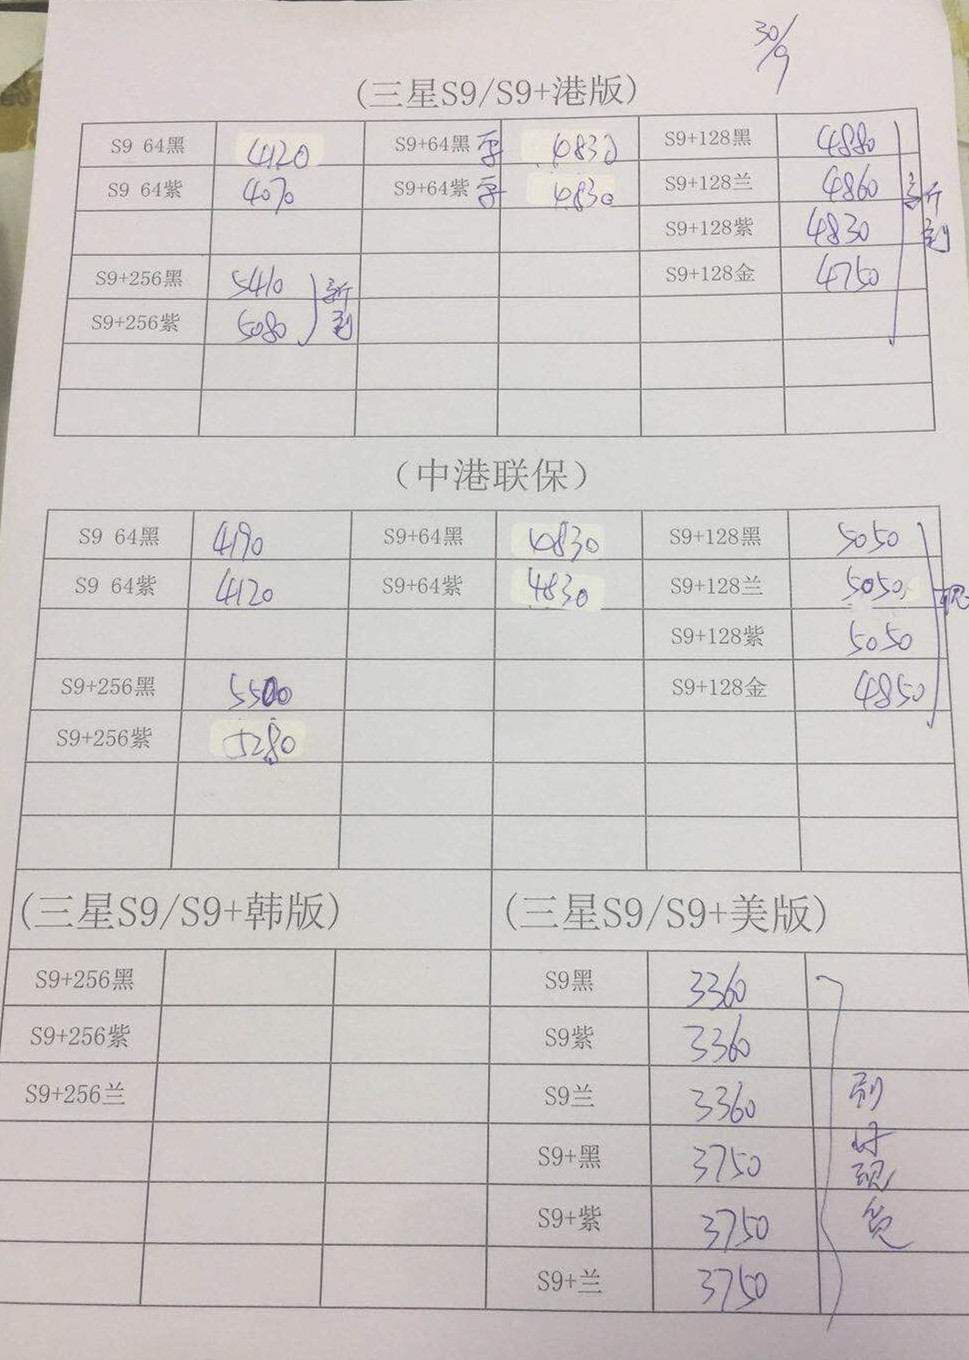 30/9
(三星S9/S9+港版)
S9 64黑 4120 S9+64黑 4830 S9+128黑 4880
S9 64紫 4070 S9+64紫 4830 S9+128兰 4860 新到
S9+128紫 4830
S9+256黑 5410 新到 S9+128金 4750
S9+256紫 5080
（中港联保）
S9 64黑 4190 S9+64黑 4830 S9+128黑 5050
S9 64紫 4120 S9+64紫 4830 S9+128兰 5050
S9+128紫 5050
S9+256黑 5500 S9+128金 4850
S9+256紫 5280
(三星S9/S9+韩版) (三星S9/S9+美版)
S9+256黑 S9黑 3360
S9+256紫 S9紫 3360
S9+256兰 S9兰 3360
S9+黑 3750 现
S9+紫 3750 货
S9+兰 3750